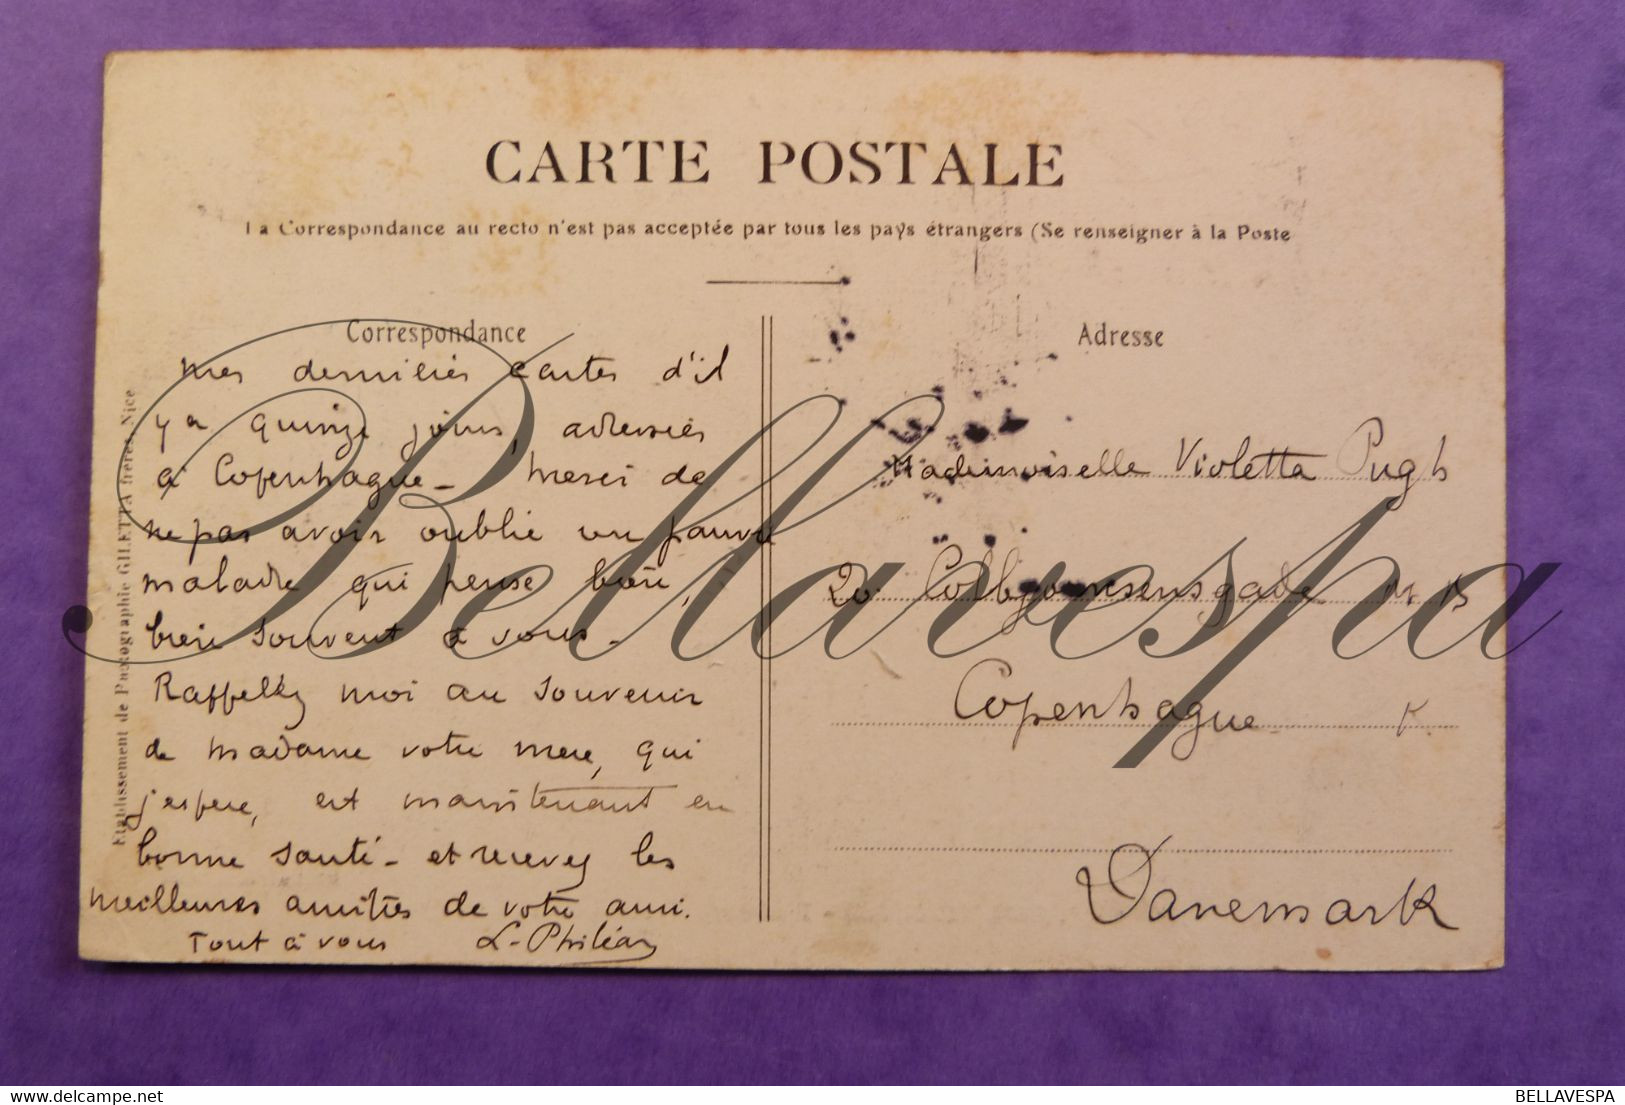 CARTE POSTALE
La Correspondance au recto n'est pas acceptée par tous les pays étrangers (Se renseigner à la Poste
Correspondance
mes dernières cartes d'il
y a quinze jours, adressées
à Copenhague - merci de
ne pas avoir oublié un pauvre
malade qui pense bien,
bien souvent à vous -
Rappelez moi au souvenir
de madame votre mère, qui
j'espère, est maintenant en
bonne santé - et recevez les
meilleures amitiés de votre ami.
Tout à vous L. Philéas
Etablissement de Photographie GILETTA frères, Nice
Adresse
Mademoiselle Violetta Pugh
20 Colbjornsensgade
Copenhague K.
Danemark
Bellavespa
BELLAVESPA